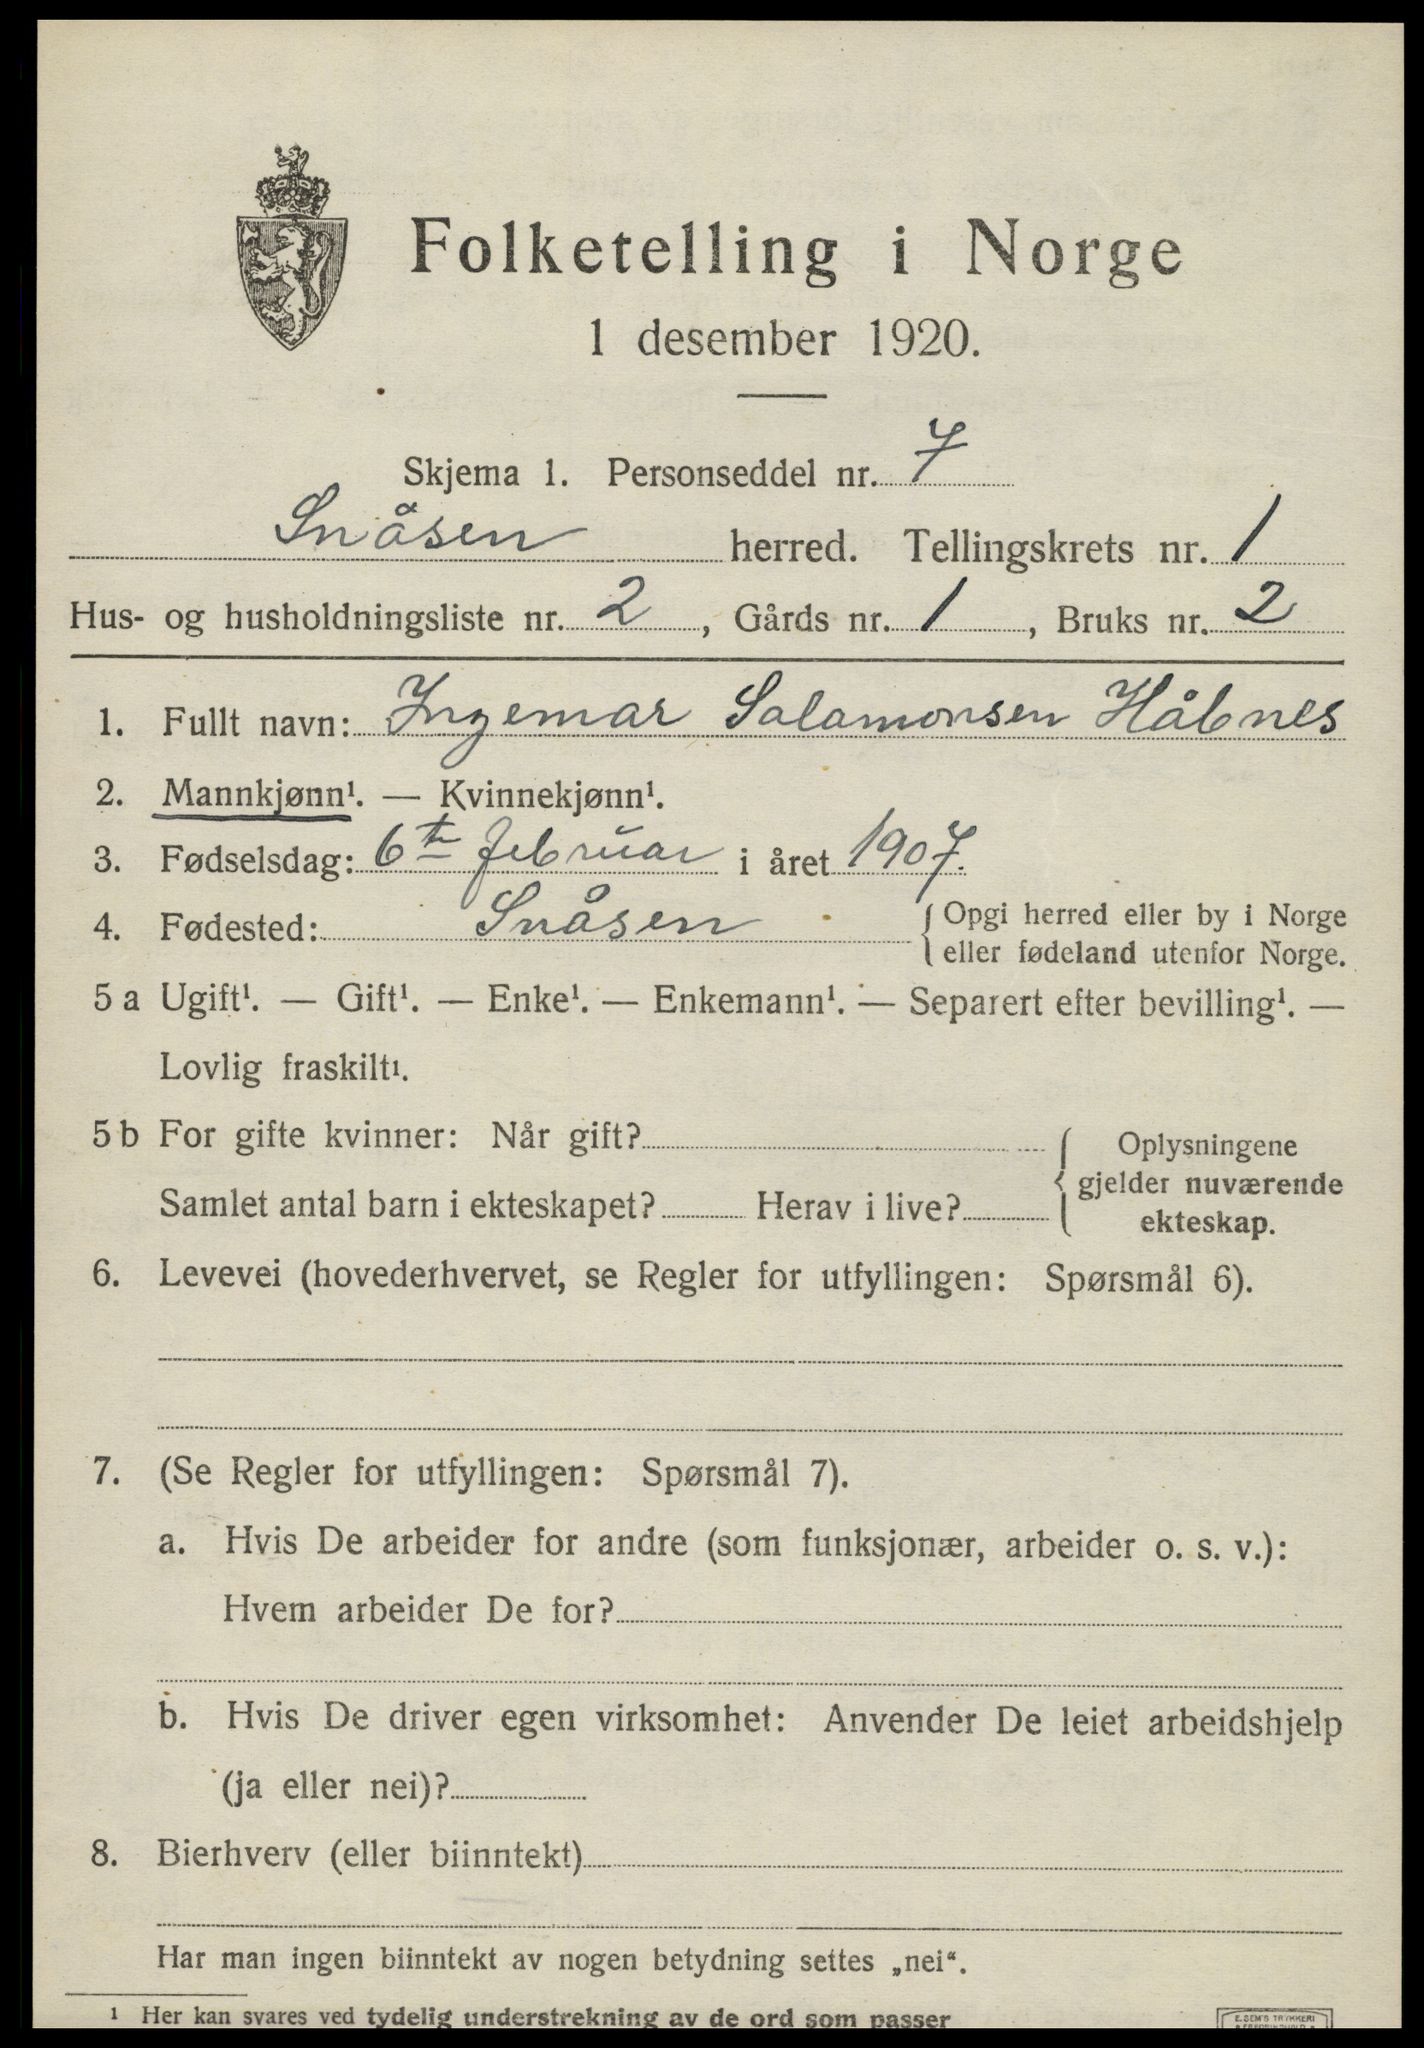 Folketelling i Norge
1 desember 1920.
Skjema 1. Personseddel nr. 7
Snåsen herred. Tellingskrets nr. 1
Hus- og husholdningsliste nr. 2, Gårds nr. 1, Bruks nr. 2
1. Fullt navn: Ingemar Salamonsen Håbnes
2. Mannkjønn¹. — Kvinnekjønn¹.
3. Fødselsdag: 6te februar i året 1907.
4. Fødested: Snåsen { Opgi herred eller by i Norge
eller fødeland utenfor Norge.
5 a Ugift¹. — Gift¹. — Enke¹. — Enkemann¹. — Separert efter bevilling¹. —
Lovlig fraskilt¹.
5 b For gifte kvinner: Når gift? { Oplysningene
gjelder nuværende
Samlet antal barn i ekteskapet? Herav i live? ekteskap.
6. Levevei (hovederhvervet, se Regler for utfyllingen: Spørsmål 6).
7. (Se Regler for utfyllingen: Spørsmål 7).
a. Hvis De arbeider for andre (som funksjonær, arbeider o. s. v.):
Hvem arbeider De for?
b. Hvis De driver egen virksomhet: Anvender De leiet arbeidshjelp
(ja eller nei)?
8. Bierhverv (eller biinntekt)
Har man ingen biinntekt av nogen betydning settes „nei“.
¹ Her kan svares ved tydelig understrekning av de ord som passer
E. SEM'S TRYKKERI